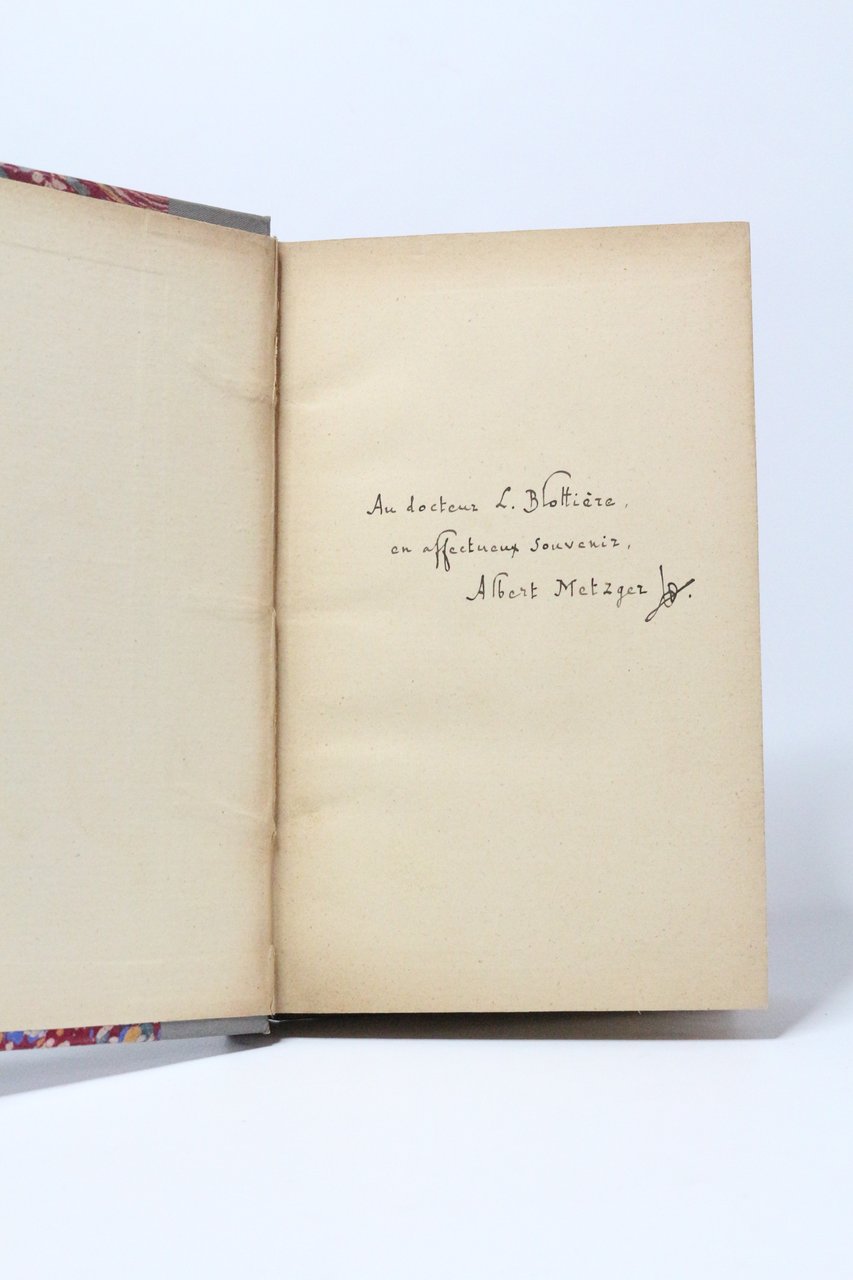 Au docteur L. Blottière,
en affectueux souvenir,
Albert Metzger